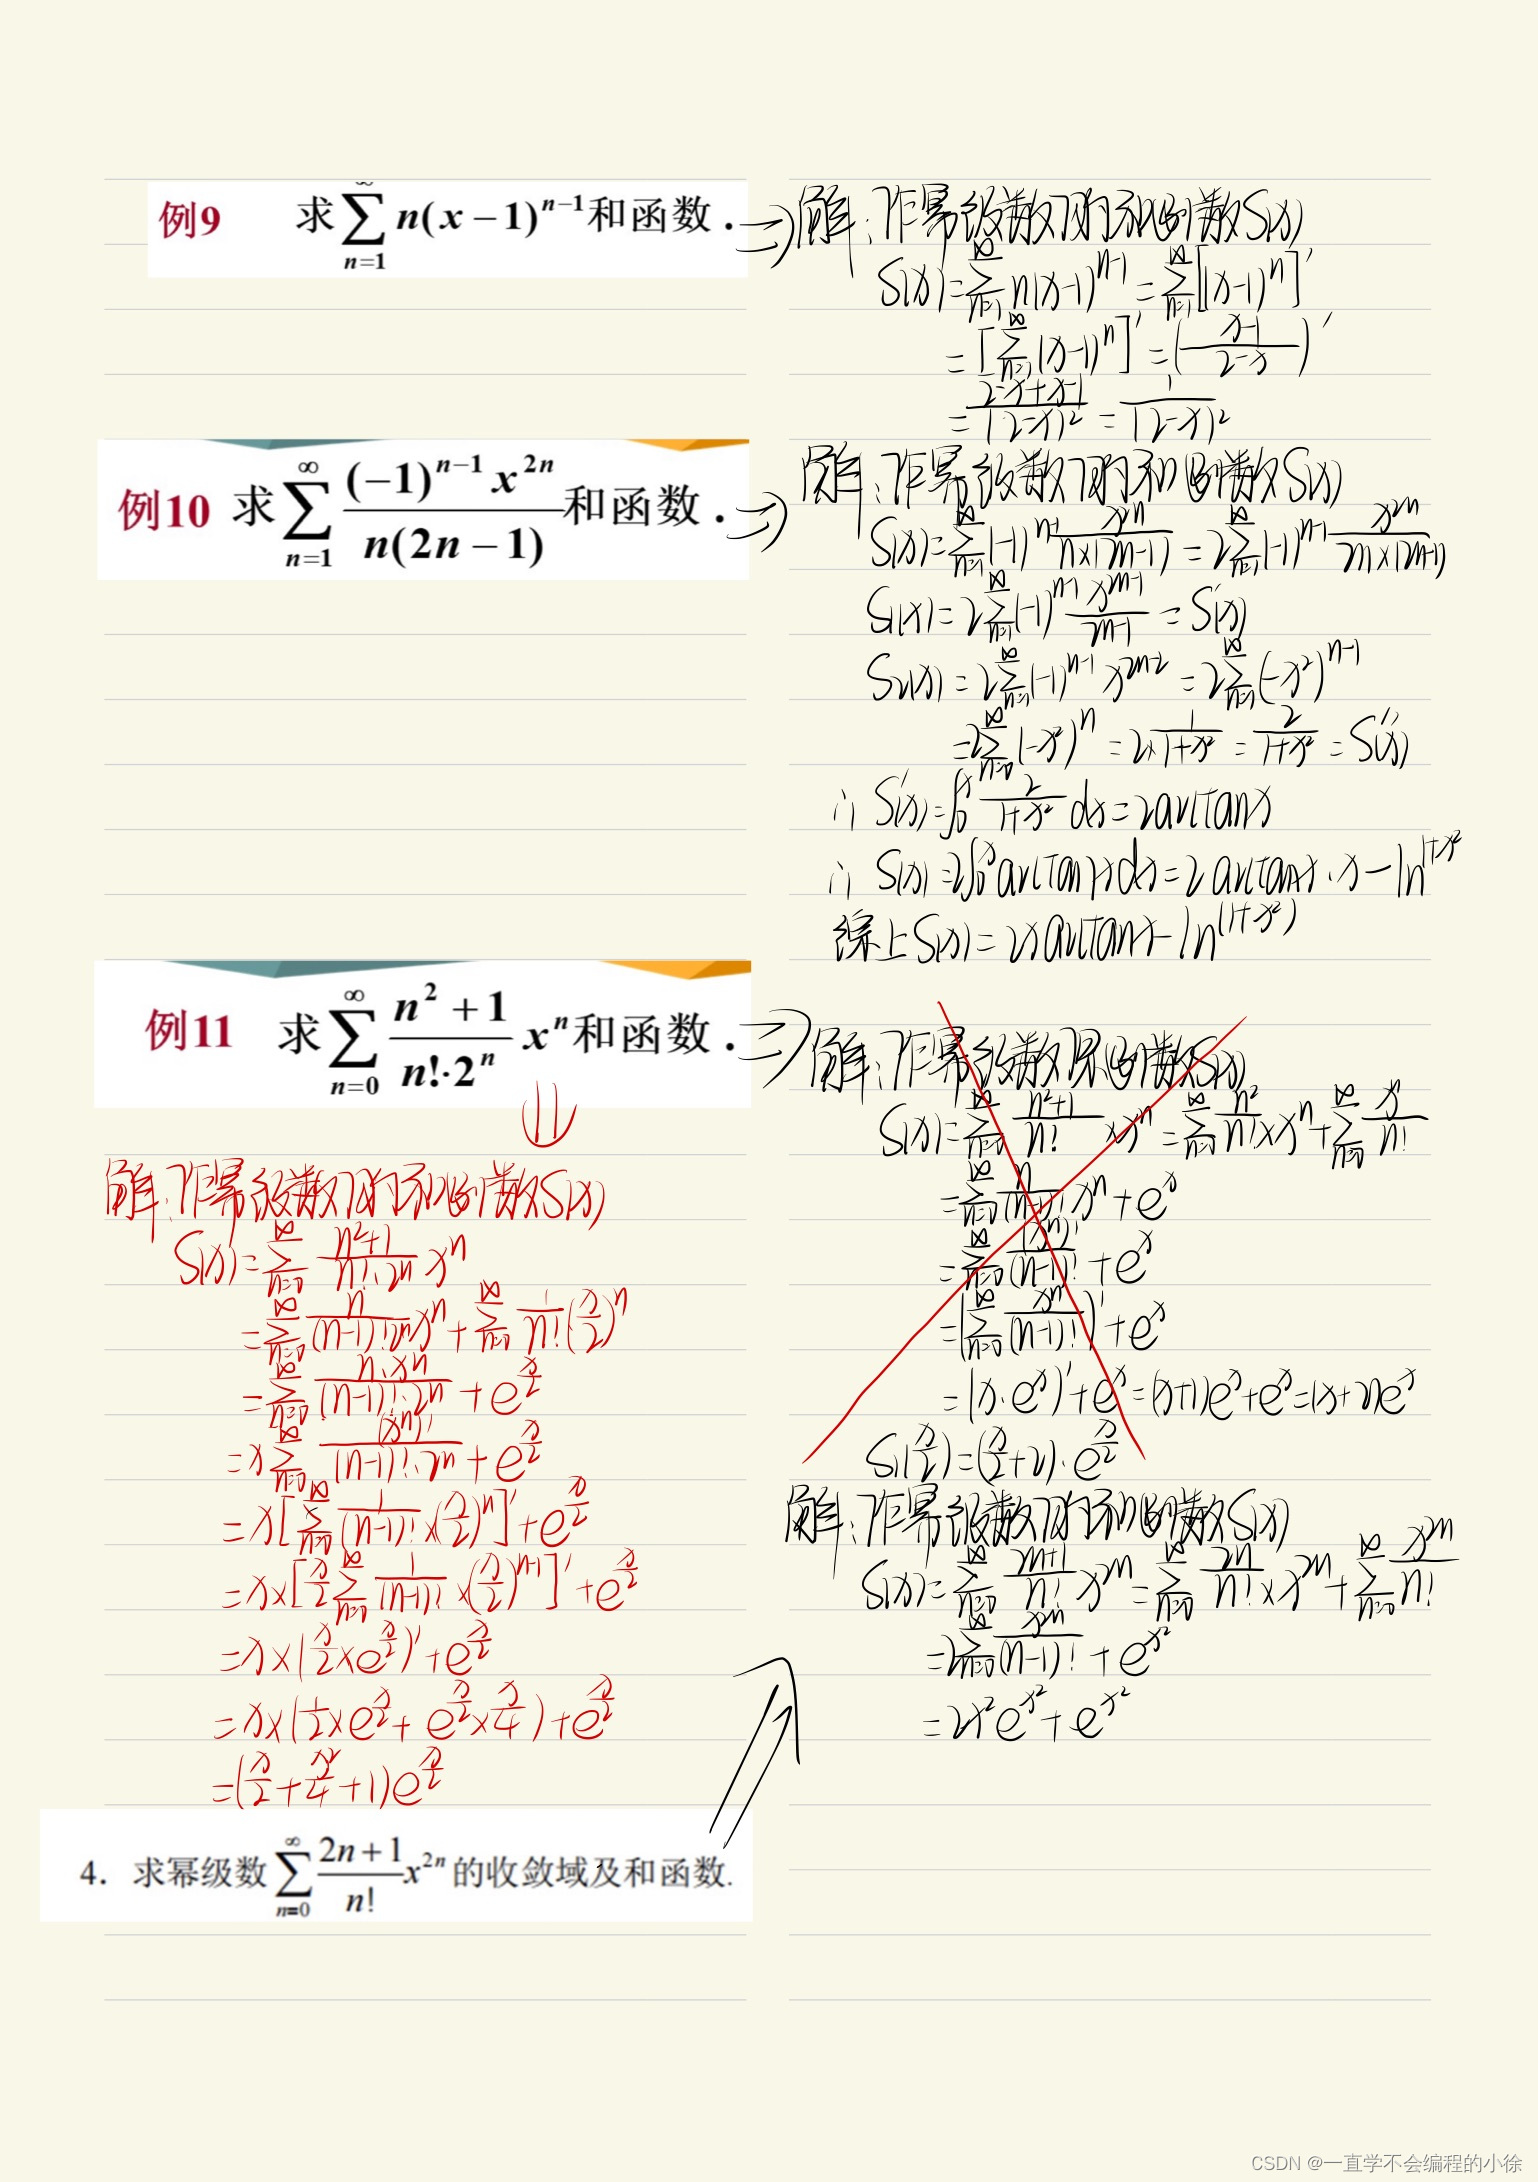 例9 求∑_{n=1}^{∞} n(x−1)^{n−1}和函数.
解:作幂级数的和函数S(x)
S(x)=∑_{n=1}^{∞} n(x-1)^{n-1} = ∑_{n=1}^{∞}[(x-1)^n]'
= [∑_{n=1}^{∞}(x-1)^n]' = (\frac{x-1}{2-x})'
= \frac{2-x+x-1}{(2-x)^2} = \frac{1}{(2-x)^2}
例10 求∑_{n=1}^{∞} \frac{(−1)^{n−1} x^{2n}}{n(2n−1)}和函数.
解:作幂级数的和函数S(x)
S(x)=∑_{n=1}^{∞}(-1)^{n-1}\frac{x^{2n}}{n×(2n-1)} = 2∑_{n=1}^{∞}(-1)^{n-1}\frac{x^{2n}}{2n×(2n-1)}
S_1(x)=2∑_{n=1}^{∞}(-1)^{n-1}\frac{x^{2n-1}}{2n-1} = S'(x)
S_2(x)=2∑_{n=1}^{∞}(-1)^{n-1}x^{2n-2} = 2∑_{n=1}^{∞}(-x^2)^{n-1}
=2∑_{n=0}^{∞}(-x^2)^n = 2×\frac{1}{1+x^2} = \frac{2}{1+x^2} = S''(x)
∴ S'(x)=∫_0^x \frac{2}{1+x^2} dx=2arctanx
∴ S(x)=2∫_0^x arctanxdx=2arctanx·x-ln^{1+x^2}
综上S(x)=2xarctanx-ln^{(1+x^2)}
例11 求∑_{n=0}^{∞} \frac{n^2+1}{n!·2^n} x^n和函数.
解:作幂级数的和函数S(x)
S(x)=∑_{n=0}^{∞} \frac{n^2+1}{n!·2^n} x^n
=∑_{n=0}^{∞}\frac{n}{(n-1)!2^n}x^n+∑_{n=0}^{∞}\frac{1}{n!}(\frac{x}{2})^n
=∑_{n=0}^{∞}\frac{n·x^n}{(n-1)!·2^n}+e^{\frac{x}{2}}
=x∑_{n=0}^{∞}\frac{(x^n)'}{(n-1)!·2^n}+e^{\frac{x}{2}}
=x[∑_{n=0}^{∞}\frac{1}{(n-1)!}×(\frac{x}{2})^n]'+e^{\frac{x}{2}}
=x×[\frac{x}{2}∑_{n=0}^{∞}\frac{1}{(n-1)!}×(\frac{x}{2})^{n-1}]'+e^{\frac{x}{2}}
=x×(\frac{x}{2}×e^{\frac{x}{2}})'+e^{\frac{x}{2}}
=x×(\frac{1}{2}×e^{\frac{x}{2}}+e^{\frac{x}{2}}×\frac{x}{4})+e^{\frac{x}{2}}
=(\frac{x}{2}+\frac{x^2}{4}+1)e^{\frac{x}{2}}
S(x)=∑_{n=0}^{∞}\frac{n^2+1}{n!}×x^n=∑_{n=0}^{∞}\frac{n^2}{n!}×x^n+∑_{n=0}^{∞}\frac{x^n}{n!}
=∑_{n=0}^{∞}\frac{n}{(n-1)!}x^n+e^x
=∑_{n=0}^{∞}\frac{(x^n)'}{(n-1)!}+e^x
=(∑_{n=0}^{∞}\frac{x^n}{(n-1)!})'+e^x
=(x·e^x)'+e^x=(x+1)e^x+e^x=(x+2)e^x
S(\frac{x}{2})=(\frac{x}{2}+2)·e^{\frac{x}{2}}
4. 求幂级数∑_{n=0}^{∞} \frac{2n+1}{n!}x^{2n}的收敛域及和函数.
解:作幂级数的和函数S(x)
S(x)=∑_{n=0}^{∞}\frac{2n+1}{n!}x^{2n}=∑_{n=0}^{∞}\frac{2n}{n!}×x^{2n}+∑_{n=0}^{∞}\frac{x^{2n}}{n!}
=2∑_{n=0}^{∞}\frac{x^{2n}}{(n-1)!}+e^{x^2}
=2x^2e^{x^2}+e^{x^2}
CSDN @一直学不会编程的小徐